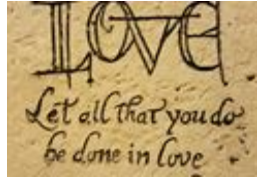 LOVE
Let all that you do
be done in love